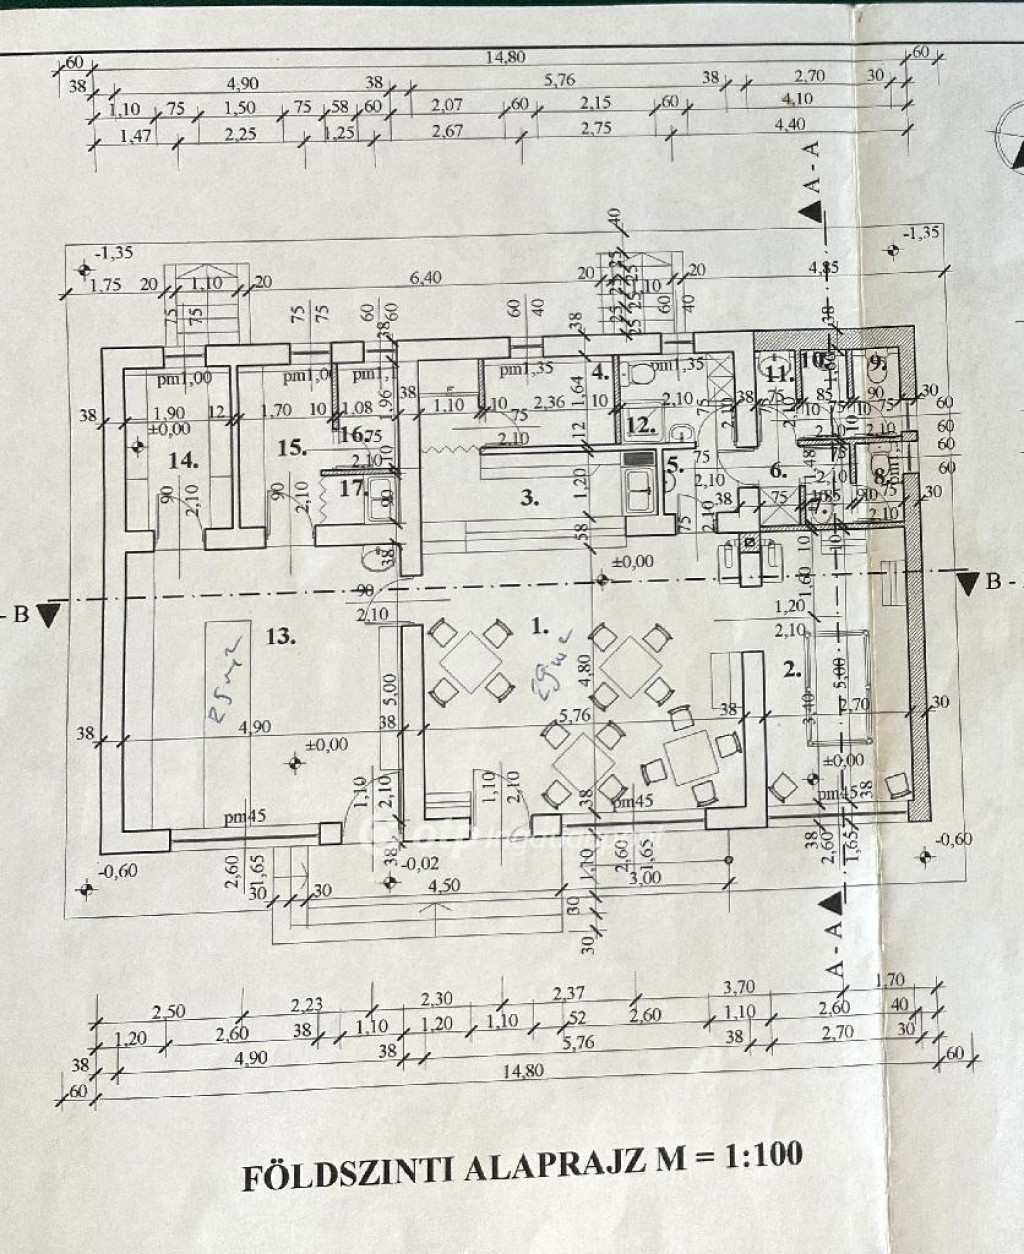 60 14,80 60
38 4,90 38 5,76 38 2,70 30
1,10 75 1,50 75 58 60 2,07 60 2,15 60 4,10
1,47 2,25 1,25 2,67 2,75 4,40
A - A
40
-1,35 -1,35
1,75 20 1,10 20 6,40 20 1,10 20 4,85
25 25 25 25 25 25
75 75 75 75 60 60 60 40 60 40 38
38 38
pm1,00 pm1,00 pm1, pm1,35 4. pm1,35 11. 10. 9.
38 1,90 12 1,70 10 1,08 1,96 38 1,10 10 2,36 1,64 10 2,10 38 75 85 90 30
±0,00 75 2,10 12 12. 75 2,10 10 75 10 75 2,10 60 60
14. 15. 16. 75 2,10 10 60 60
17. 90 3. 1,20 5. 75 2,10 6. 1,48 75 2,10 8.
90 2,10 90 2,10 58 75 2,10 38 75 10 85 7. 90 2,10 30
38 ±0,00 10 10
B 90 2,10 1,60 B -
13. 1. 1,20 2,10
25 m2 29 m2 2.
5,00 4,80 3,40 5,00
38 4,90 38 5,76 38 2,70 30
±0,00 ±0,00
1,10 2,10 1,10 2,10 38 pm45 pm45 38
pm45
otp Ingatlanpont
-0,60 2,60 1,65 38 -0,02 2,60 1,65 38 2,60 1,65 -0,60
30 30 4,50 1,10 3,00
30 30
A - A
2,50 2,23 2,30 2,37 3,70 1,70
1,20 2,60 38 1,10 1,20 1,10 52 2,60 1,10 2,60 40
38 4,90 38 5,76 38 2,70 30
60 14,80 60
FÖLDSZINTI ALAPRAJZ M = 1:100